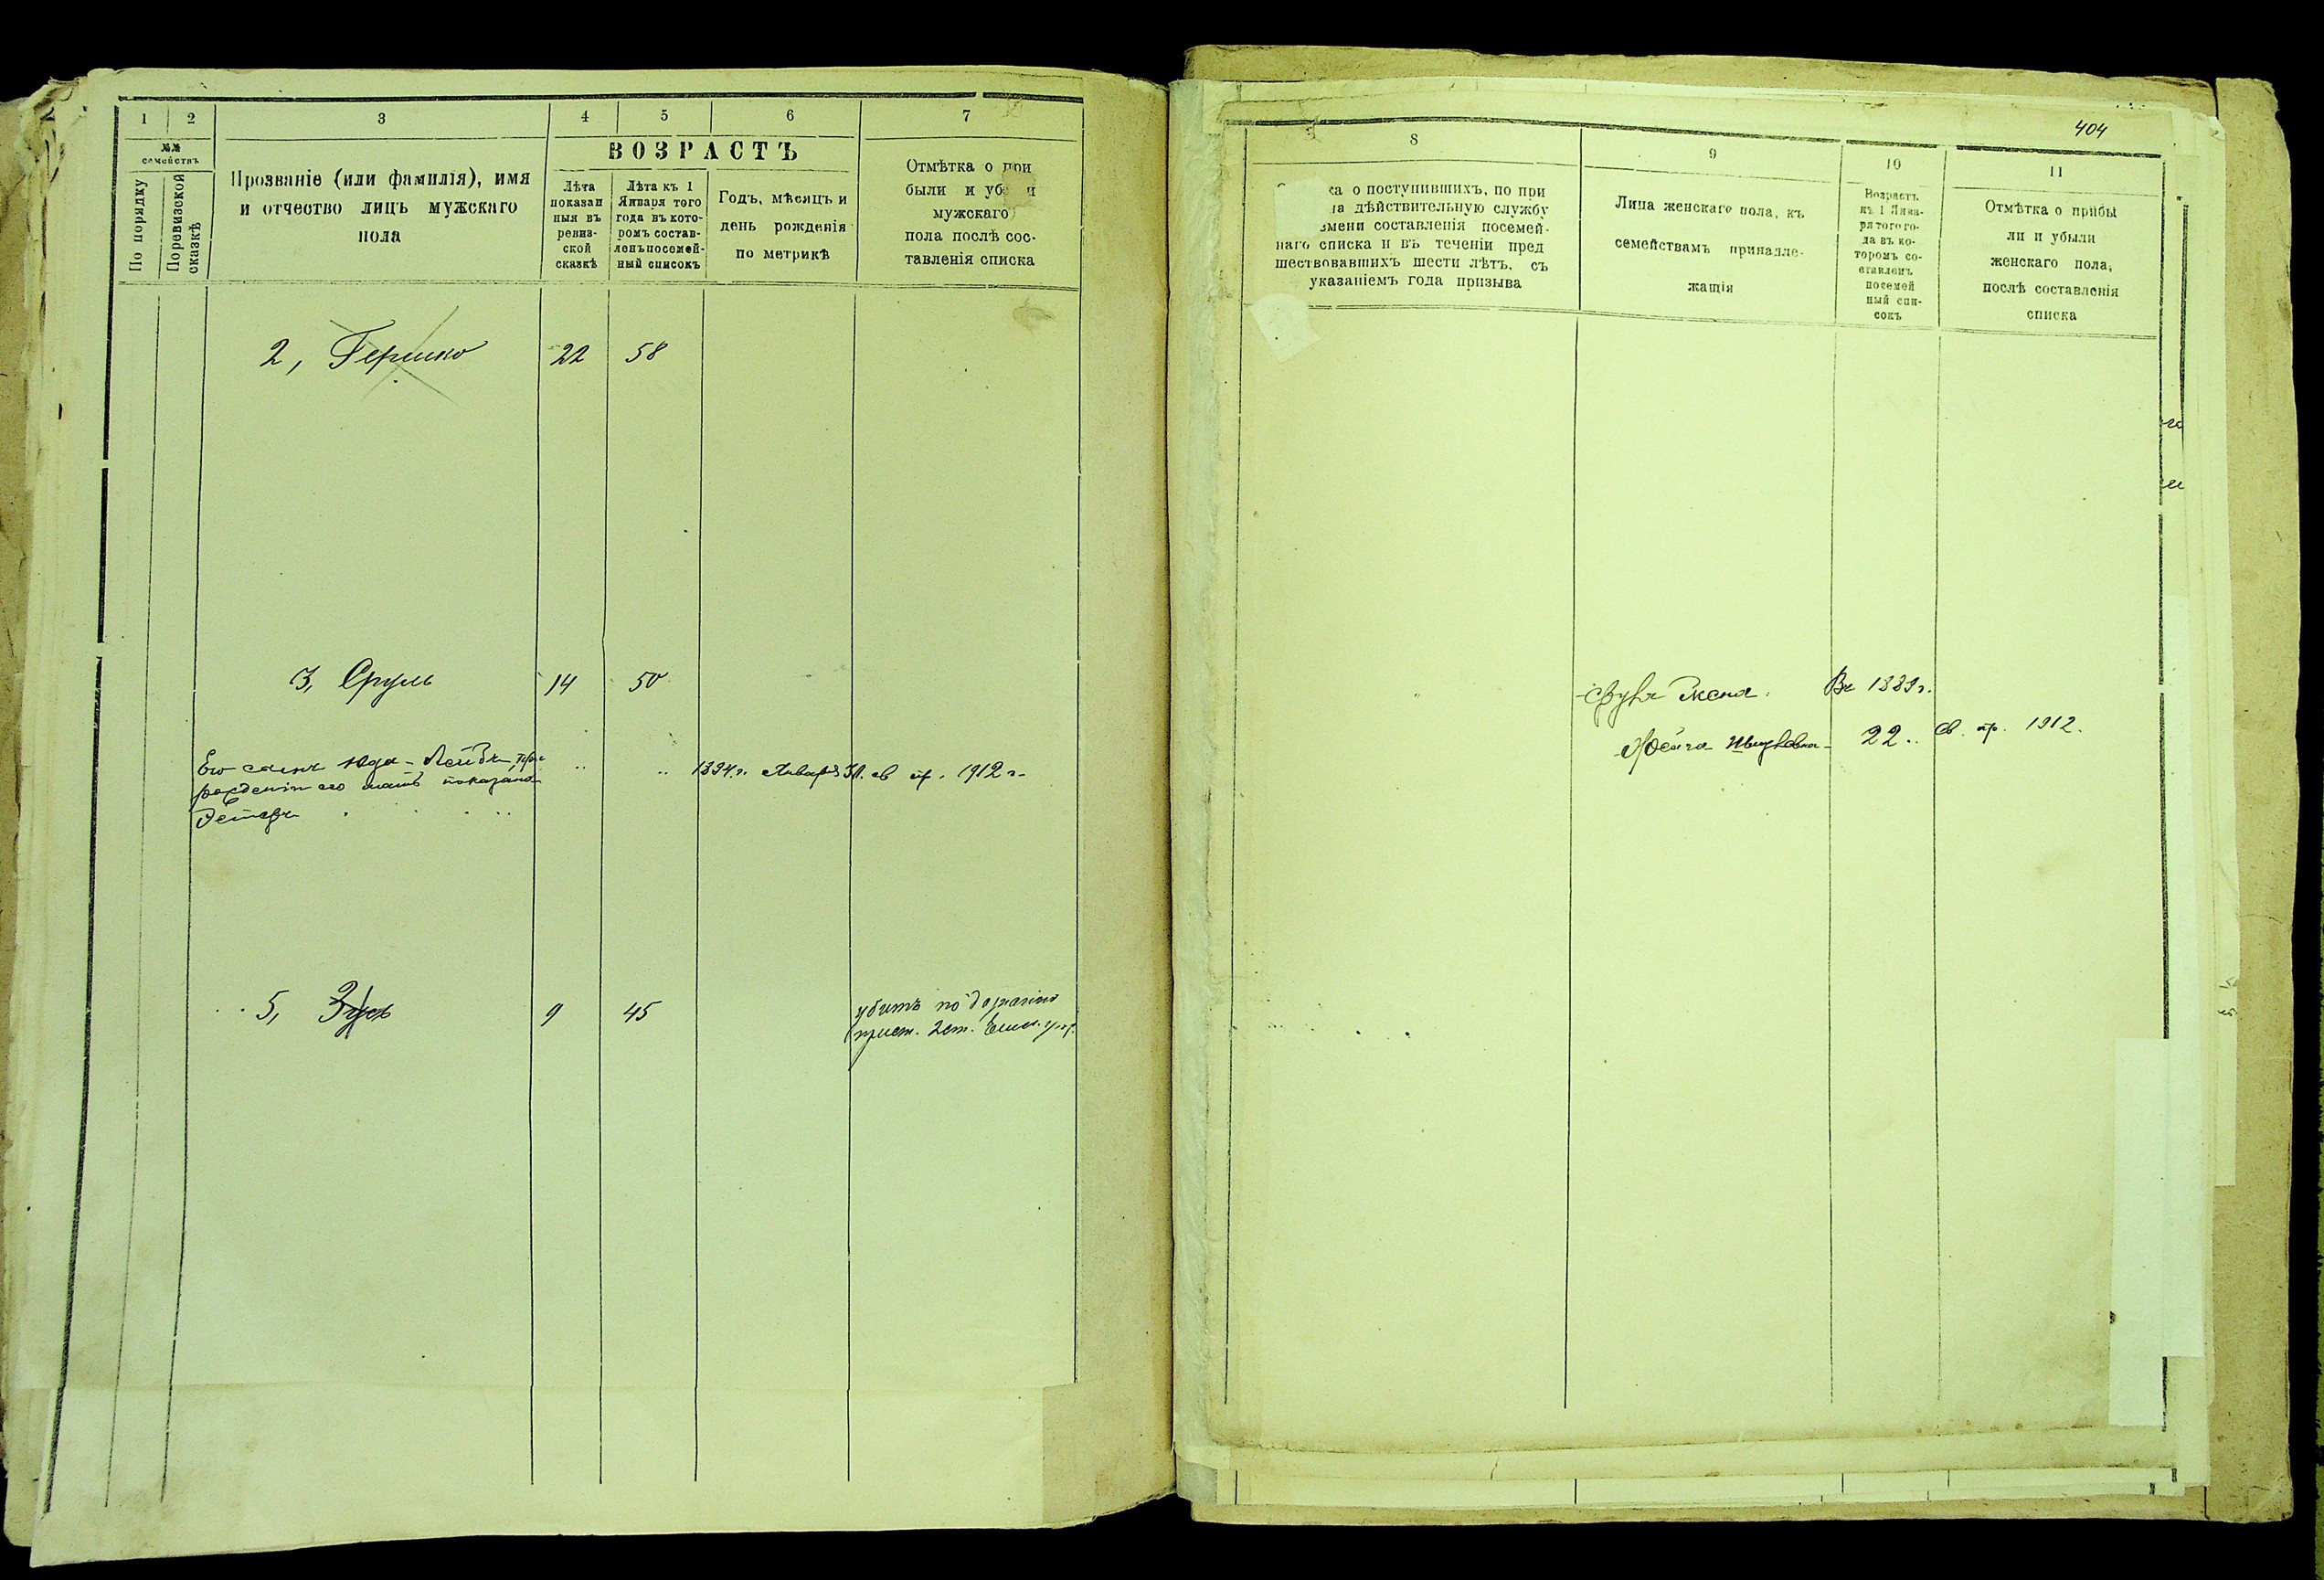 1 2 3 4 5 6 7
№№ семействъ
По порядку
По ревизской сказкѣ
Прозваніе (или фамилія), имя
и отчество лицъ мужскаго
пола
ВОЗРАСТЪ
Лѣта
показан
ныя въ
ревиз-
ской
сказкѣ
Лѣта къ 1
Января того
года въ кото-
ромъ состав-
ленъ посемей-
ный списокъ
Годъ, мѣсяцъ и
день рожденія
по метрикѣ
Отмѣтка о при
были и уб и
мужскаго
пола послѣ сос-
тавленія списка
2, Гершко 22 58
3, Сруль 14 50
Его сынъ Юда-Лейбъ, при 1894 г. Января 30. св пр. 1912 г.
рожденіи его мать показана
Эстеръ
5, Зусь 9 45 убитъ по
прист. 2 ст.
404
8 9 10 11
ка о поступившихъ, по при
на дѣйствительную службу
емени составленія посемей-
наго списка и въ теченіи пред
шествовавшихъ шести лѣтъ, съ
указаніемъ года призыва
Лица женскаго пола, къ
семействамъ принадле-
жащія
Возрастъ
къ 1 Янва-
ря того го-
да въ ко-
торомъ со-
ставленъ
посемей
ный спи-
сокъ
Отмѣтка о прибы
ли и убыли
женскаго пола,
послѣ составленія
списка
жена. Въ 1889 г.
22.. св. пр. 1912.